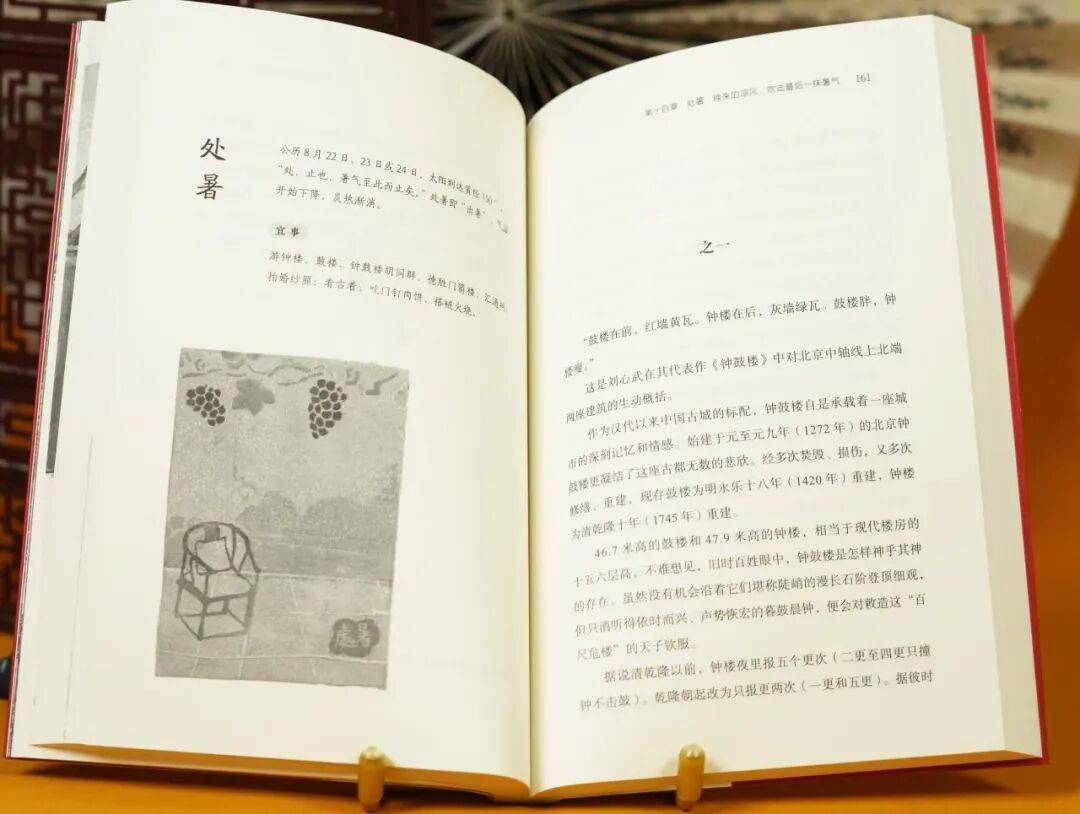 处暑
公历8月22日、23日或24日，太阳到达黄经150°，
“处，止也，暑气至此而止矣。”处暑即“出暑”，气温
开始下降，炎热渐消。
宜事
游钟楼、鼓楼、钟鼓楼胡同群、德胜门箭楼、汇通祠；
拍婚纱照；看古着；吃门钉肉饼、褡裢火烧。
處暑
第十四章 处暑 晚来的凉风，吹走最后一抹暑气 161
之一
“鼓楼在前，红墙黄瓦。钟楼在后，灰墙绿瓦。鼓楼胖，钟
楼瘦。”
这是刘心武在其代表作《钟鼓楼》中对北京中轴线上北端
两座建筑的生动概括。
作为汉代以来中国古城的标配，钟鼓楼自是承载着一座城
市的深刻记忆和情感。始建于元至元九年（1272年）的北京钟
鼓楼更凝结了这座古都无数的悲欢。经多次焚毁、损伤，又多次
修缮、重建，现存鼓楼为明永乐十八年（1420年）重建，钟楼
为清乾隆十年（1745年）重建。
46.7米高的鼓楼和47.9米高的钟楼，相当于现代楼房的
十五六层高。不难想见，旧时百姓眼中，钟鼓楼是怎样神乎其神
的存在。虽然没有机会沿着它们堪称陡峭的漫长石阶登顶细观，
但只消听得依时而兴、声势恢宏的暮鼓晨钟，便会对敕造这“百
尺危楼”的天子钦服。
据说清乾隆以前，钟楼夜里报五个更次（二更至四更只撞
钟不击鼓）。乾隆朝起改为只报更两次（一更和五更）。据彼时